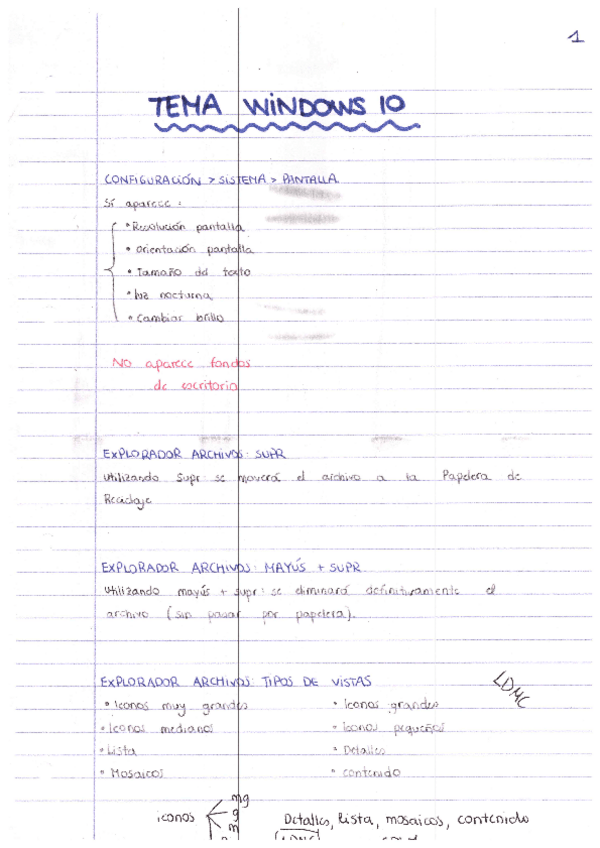 1
TEMA WINDOWS 10
CONFIGURACIÓN > SISTEMA > PANTALLA
Sí aparece:
• Resolución pantalla
• Orientación pantalla
• Tamaño del texto
• Luz nocturna
• Cambiar brillo
NO aparece fondos
de escritorio
EXPLORADOR ARCHIVOS: SUPR
Utilizando Supr se moverá el archivo a la Papelera de
Reciclaje
EXPLORADOR ARCHIVOS: MAYÚS + SUPR
Utilizando mayús + supr: se eliminará definitivamente el
archivo (sin pasar por papelera).
EXPLORADOR ARCHIVOS: TIPOS DE VISTAS
LDMC
• Iconos muy grandes • Iconos grandes
• Iconos medianos • Iconos pequeños
• Lista • Detalles
• Mosaicos • Contenido
mg
iconos g Detalles, lista, mosaicos, contenido
m